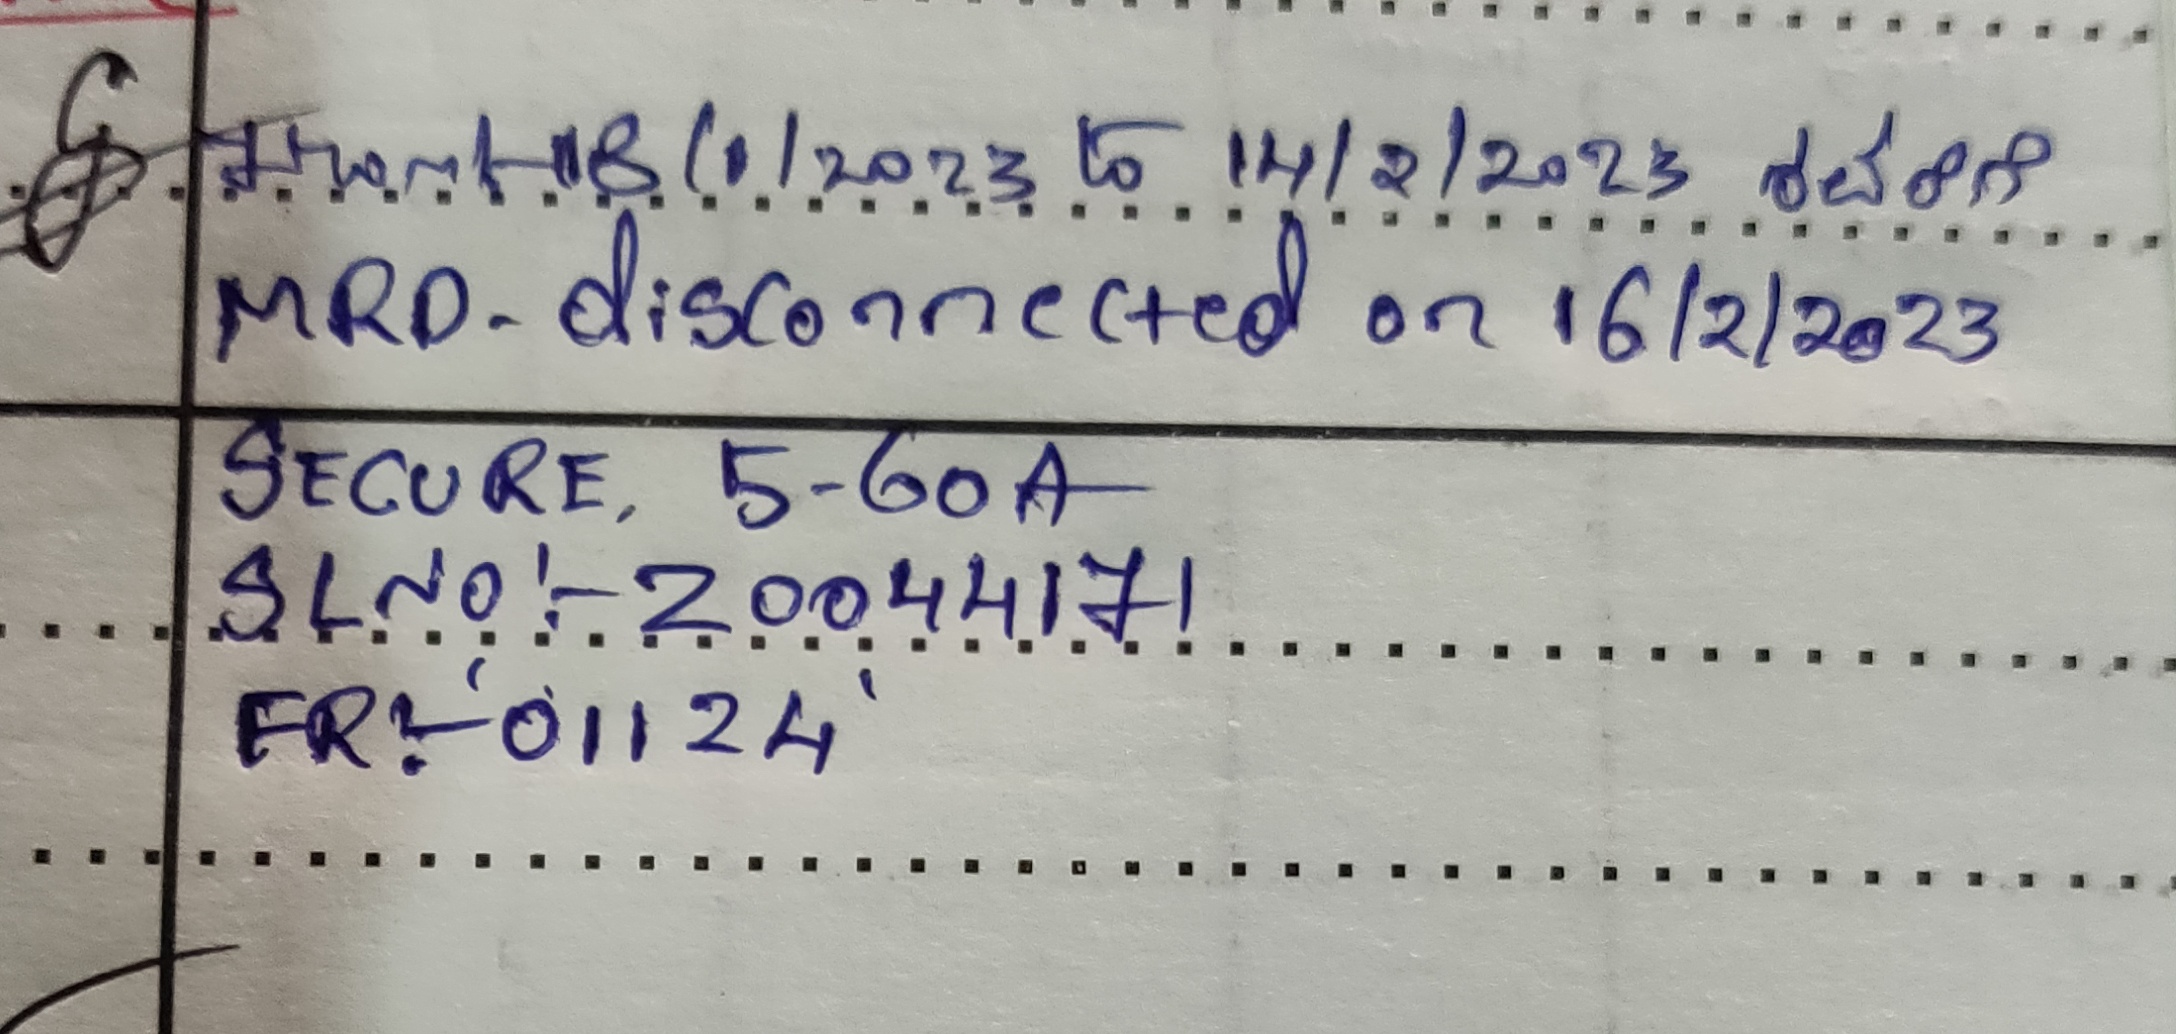 from 18/1/2023 to 14/2/2023
MRD- disconnected on 16/2/2023
SECURE, 5-60A
SLNO:- 20044171
FR:- '01124'